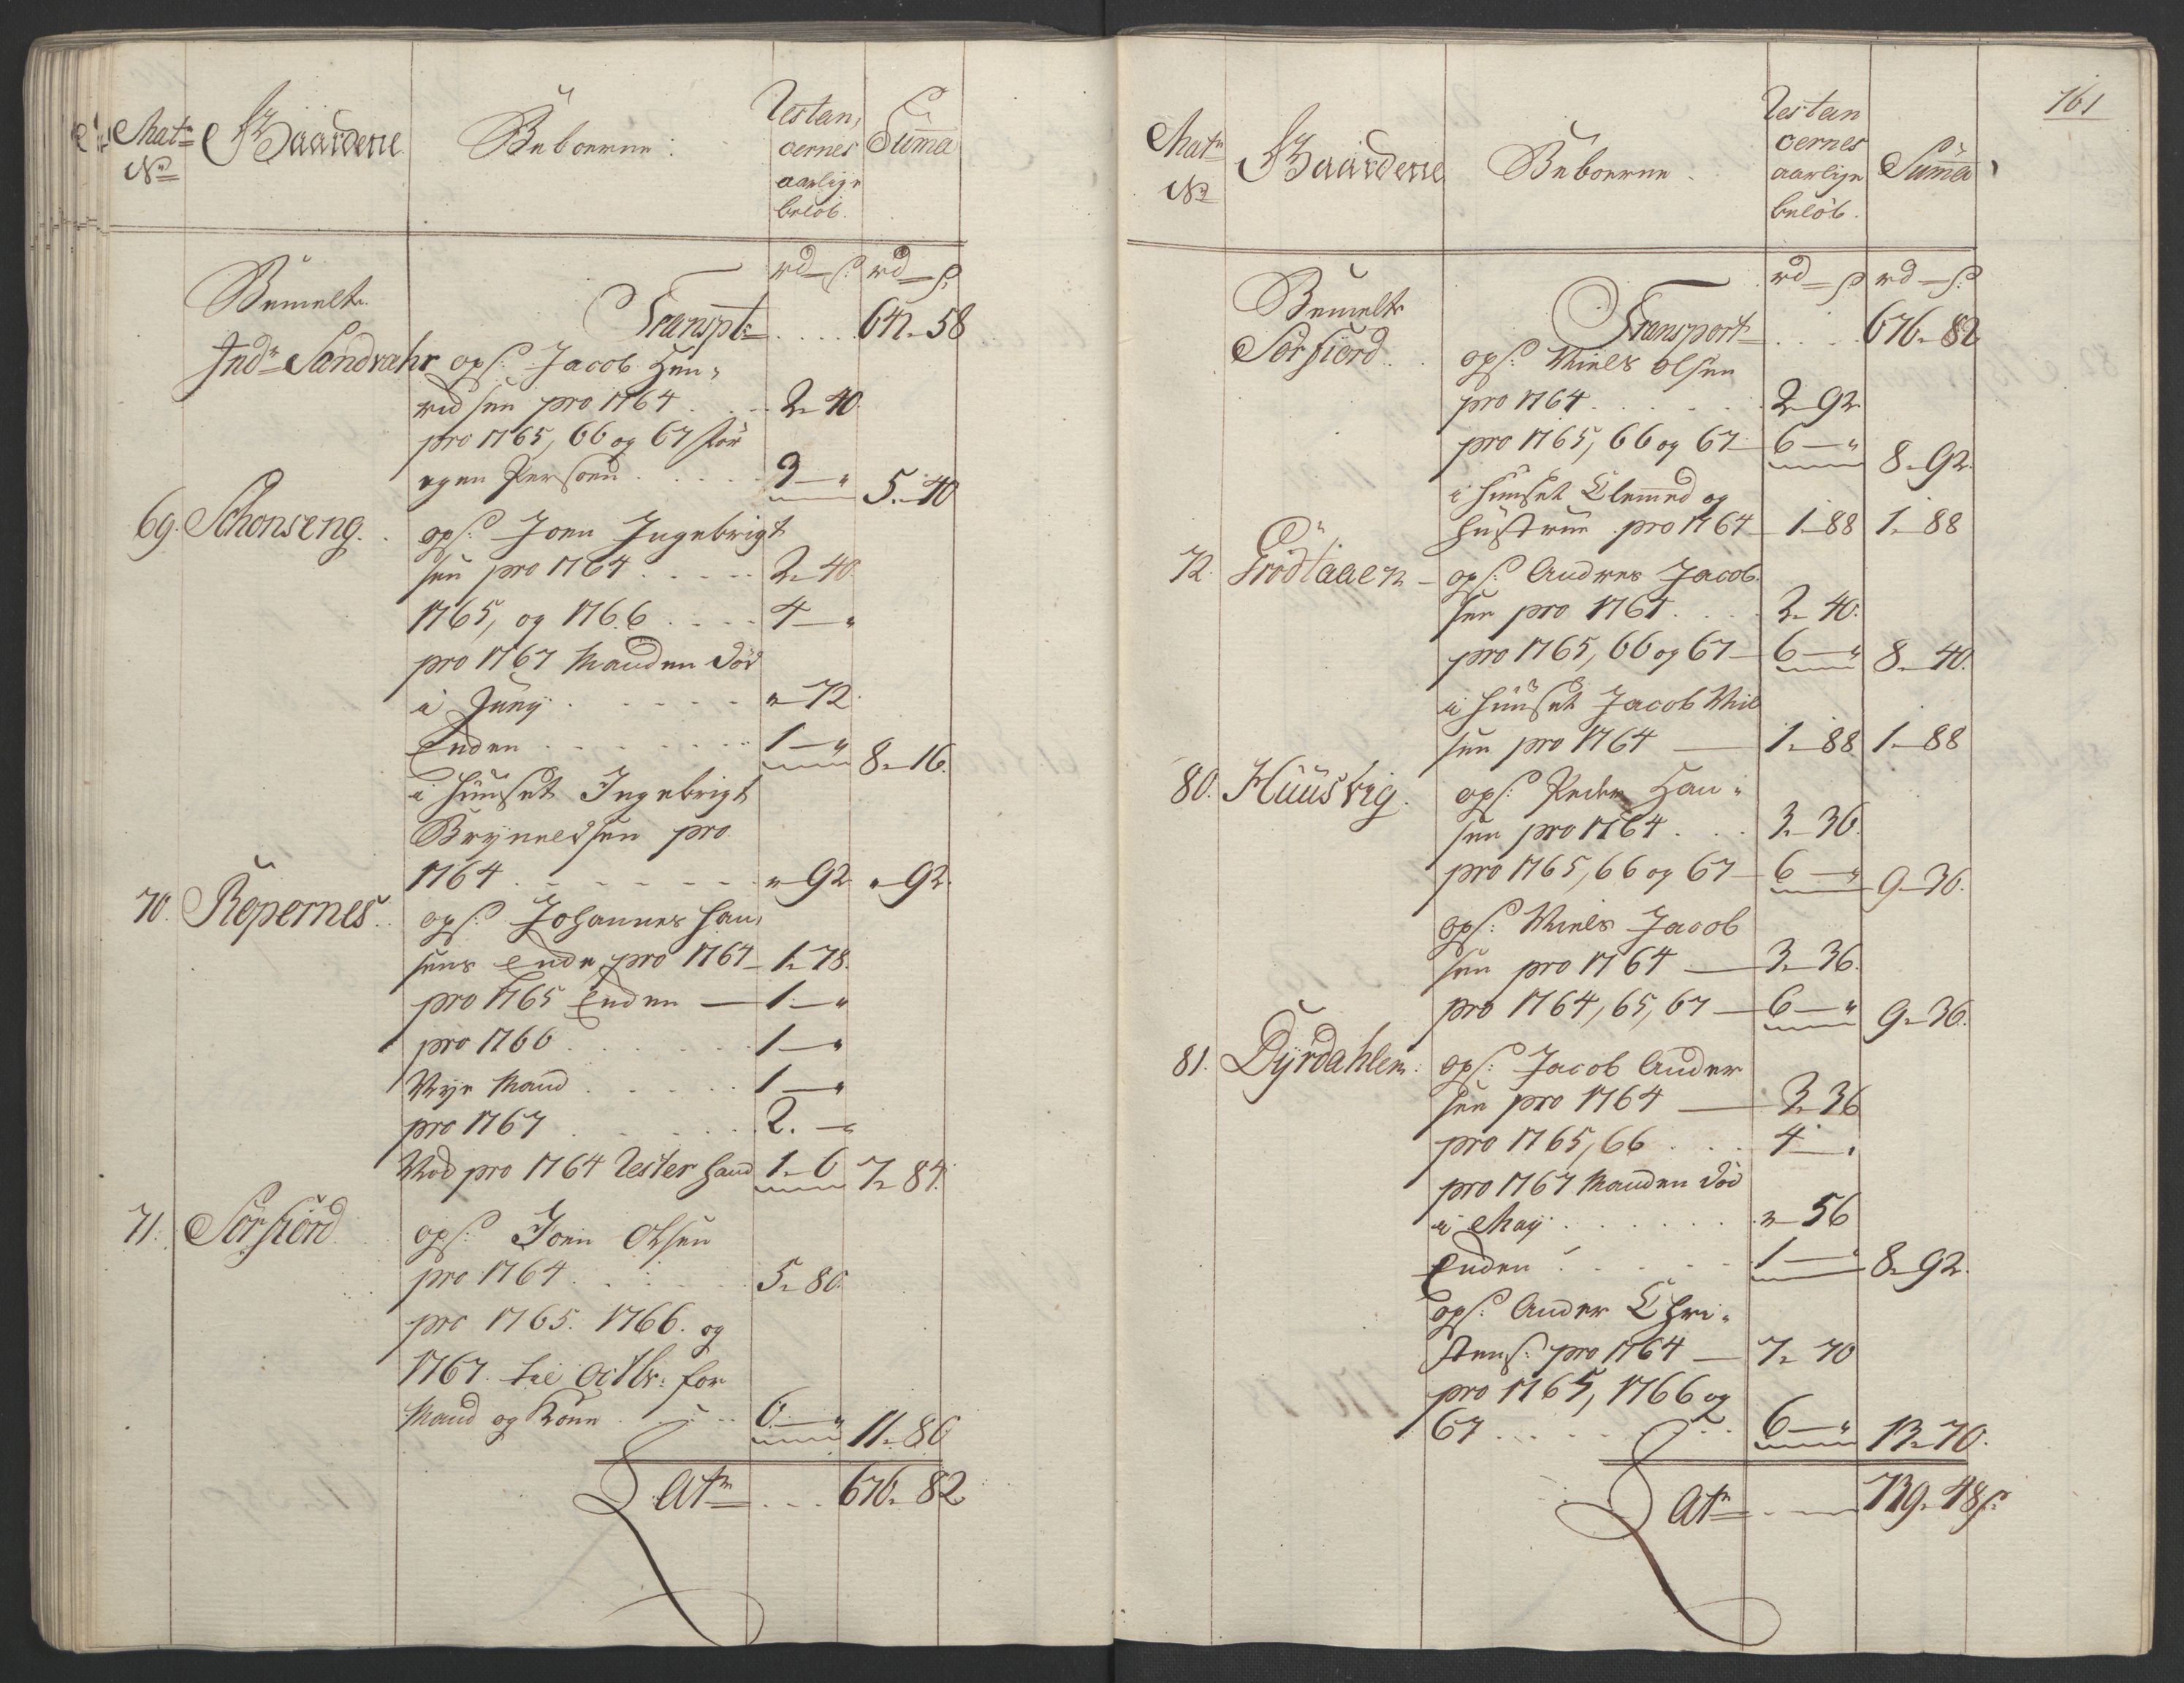 Matr
No
Gaardene
Beboerne.
Restan,
cernes
aarlige
beløb.
Summa
rd — s rd — s
Bemelte
Transpt: . . . . 642 - 58
Indr Sandvahr ops: Jacob Hen,
ricsen pro 1764 . . . 2 - 40
pro 1765, 66 og 67 for
egen Persohn . . . . 3 — " 5 - 40
69. Schonseng. . ops: Joen Ingebrigt
sen pro 1764 . . . . . 2 - 40
1765, og 1766 . . . . 4 — "
pro 1767 Manden død
i Juny . . . . . . " - 72
Enken . . . . . . . 1 — " 8 - 16.
i huuset Ingebrigt
Brynnelsen pro
1764 . . . . . . . " - 92 " - 92.
70. Røpernes. . ops: Johannes Han,
sens Enke pro 1764 - 1 - 78.
pro 1765 Enken — 1 — "
pro 1766 . . . . . . 1 — "
Nye Mand . . . . . 1 — "
pro 1767 . . . . . . 2. — "
Nok pro 1764 Rester hand 1 - 6 7 - 84.
71. Sørfiord. ops: Joen Olsen
pro 1764 . . . . . . 5 - 80.
pro 1765. 1766. og
1767. til Octbr: for
Mand og Kone . . . . 6 — " 11 - 80
Atr . . . 676 - 82
161
Matr
No
Gaardene
Beboerne.
Restan
cernes
aarlige
beløb.
Summa
rd — s rd — s
Bemelte
Transport . . . . 676 - 82
Sørfiord. . ops: Niels Olsen
pro 1764 . . . . . . 2 - 92
pro 1765, 66 og 67 - 6 — " 8 - 92.
i huuset Clemed og
hustrue pro 1764 - 1 - 88 1 - 88
72. ops: Andres Jacob
sen pro 1764 . . . 2 - 40.
pro 1765, 66 og 67 — 6 — " 8 - 40.
i huuset Jacob Niel
sen pro 1764 — 1 - 88 1 - 88
80. Huusvig. ops: Peder Han,
sen pro 1764 . . . 3 - 36.
pro 1765, 66 og 67 — 6 — " 9 - 36.
ops: Niels Jacob
sen pro 1764 — 3 - 36.
pro 1764, 65, 67 — 6 — " 9 - 36.
81. Dyrdahlen. ops: Jacob Ander
sen pro 1764 — 3 - 36
pro 1765, 66 . . . 4 — "
pro 1767 Manden død
i May . . . . . . " - 56
Enken . . . . . . 1 — " 8 - 92.
ops: Ander Chri,
stens: pro 1764 — 7 - 70
pro 1765, 1766 og
67 . . . . . . . . 6 — " 13 - 70.
Atr . . — 739 - 48 s: